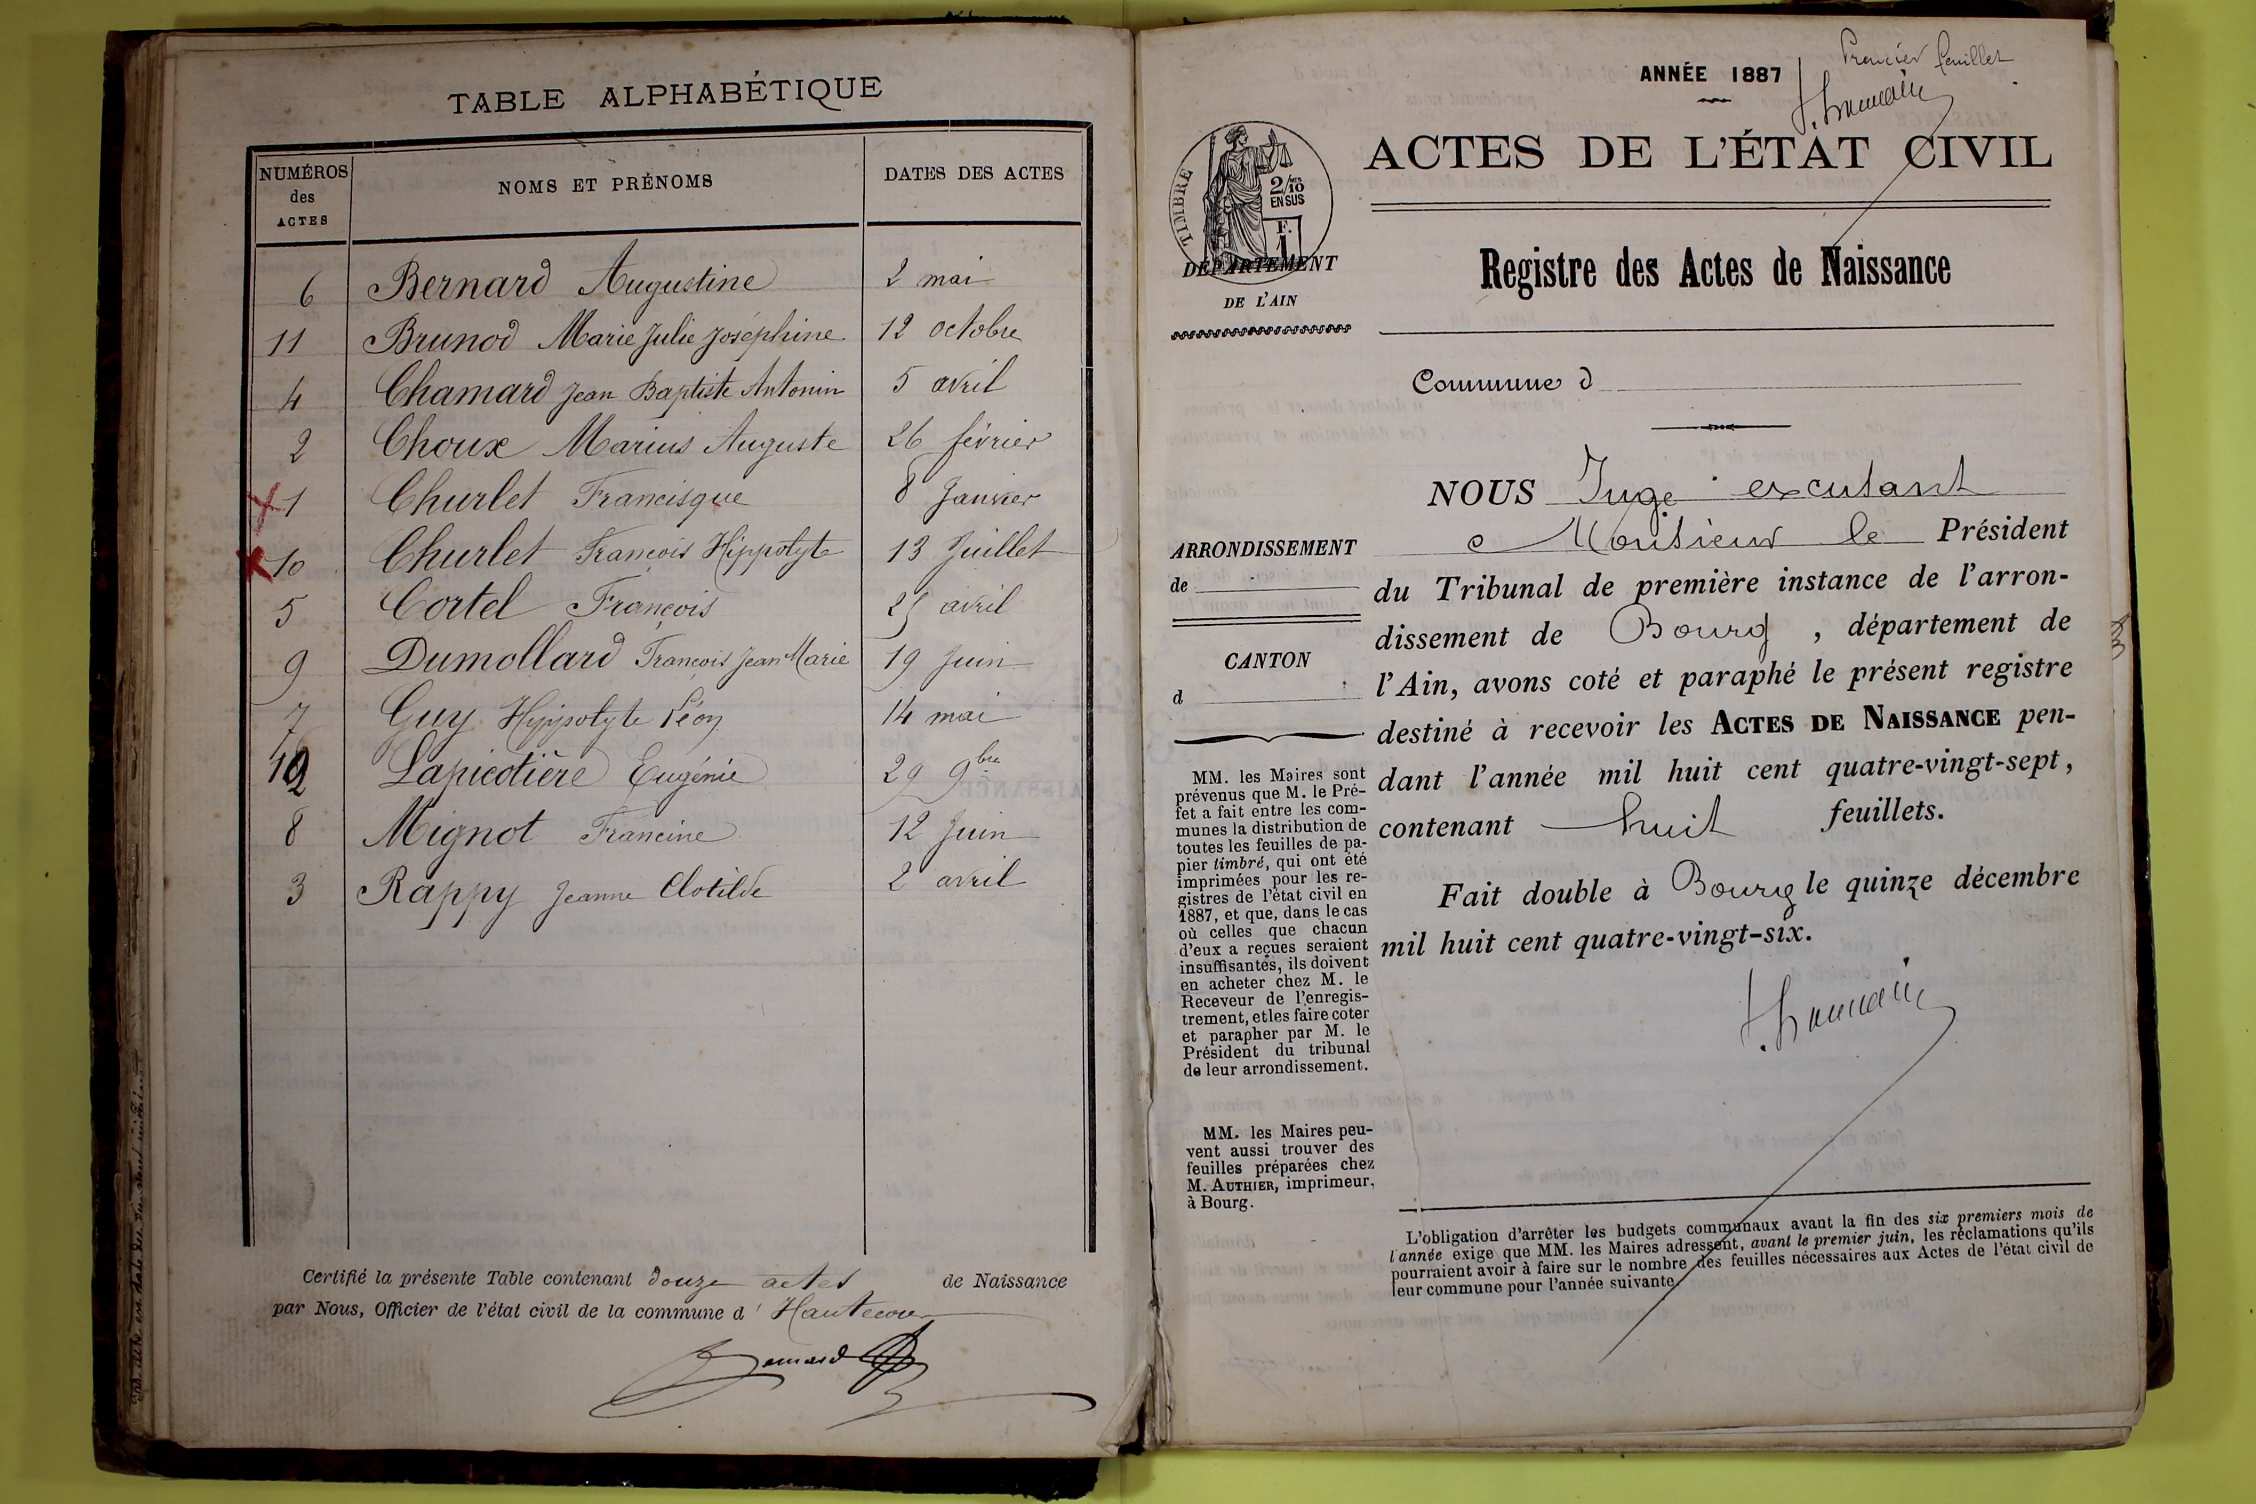 TABLE ALPHABÉTIQUE
NUMÉROS des ACTES NOMS ET PRÉNOMS DATES DES ACTES
6 Bernard Augustine 2 mai
11 Brunod Marie Julie Joséphine 12 octobre
4 Chamard Jean Baptiste Antonin 5 avril
2 Choux Marius Auguste 26 février
x 1 Churlet Francisque 8 Janvier
x 10 Churlet François Hippolyte 13 Juillet
5 Cortel François 25 avril
9 Dumollard François Jean Marie 19 Juin
7 Guy Hyppolyte Léon 14 mai
12 Lapicotière Eugénie 29 9bre
8 Mignot Francine 12 Juin
3 Rappy Jeanne Clotilde 2 avril
Certifié la présente Table contenant douze actes de Naissance
par Nous, Officier de l'état civil de la commune d' Hautecour
Bernard
Premier feuillet
ANNÉE 1887
ACTES DE L'ÉTAT CIVIL
TIMBRE
2/10 EN SUS
F. 1
DÉPARTEMENT
DE L'AIN
Registre des Actes de Naissance
Commune d
NOUS Juge excutant
Monsieur le Président
du Tribunal de première instance de l'arron-
dissement de Bourg, département de
l'Ain, avons coté et paraphé le présent registre
destiné à recevoir les ACTES DE NAISSANCE pen-
dant l'année mil huit cent quatre-vingt-sept,
contenant huit feuillets.
Fait double à Bourg le quinze décembre
mil huit cent quatre-vingt-six.
ARRONDISSEMENT
de
CANTON
d
MM. les Maires sont
prévenus que M. le Pré-
fet a fait entre les com-
munes la distribution de
toutes les feuilles de pa-
pier timbré, qui ont été
imprimées pour les re-
gistres de l'état civil en
1887, et que, dans le cas
où celles que chacun
d'eux a reçues seraient
insuffisantes, ils doivent
en acheter chez M. le
Receveur de l'enregis-
trement, et les faire coter
et parapher par M. le
Président du tribunal
de leur arrondissement.
MM. les Maires peu-
vent aussi trouver des
feuilles préparées chez
M. AUTHIER, imprimeur,
à Bourg.
L'obligation d'arrêter les budgets communaux avant la fin des six premiers mois de
l'année exige que MM. les Maires adressent, avant le premier juin, les réclamations qu'ils
pourraient avoir à faire sur le nombre des feuilles nécessaires aux Actes de l'état civil de
leur commune pour l'année suivante.